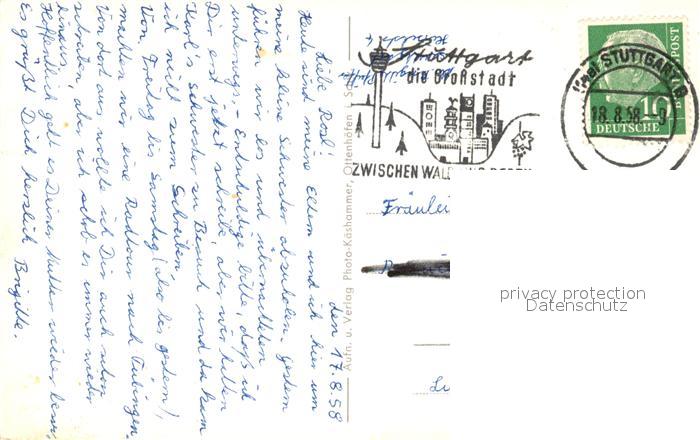 den 17.8.58
Liebe Rosl!
Heute sind meine Eltern und ich hier um
meine kleine Schwester abzuholen. Gestern
fuhren wir los und übernachteten
unterwegs. – Entschuldige bitte, daß ich
Dir erst jetzt schreibe, aber wir hatten
Karl's Schwester zu Besuch und da kam
ich nicht zum Schreiben.
Von Freitag bis Samstag (also bis gestern),
machten wir eine Radtour nach Tübingen.
Von dort aus wollte ich Dir auch schon
schreiben aber ich schob es immer wieder
hinaus.
Hoffentlich geht es Deiner Mutter wieder besser.
Es grüßt Dich herzlich Brigitte.
Aufn. u. Verlag Photo-Käshammer, Ottenhöfen i. S
Stuttgart
die Großstadt
ZWISCHEN WALD
STUTTGART 9
18.8.58.-9
10
DEUTSCHE
POST
Fräulei
privacy protection
Datenschutz